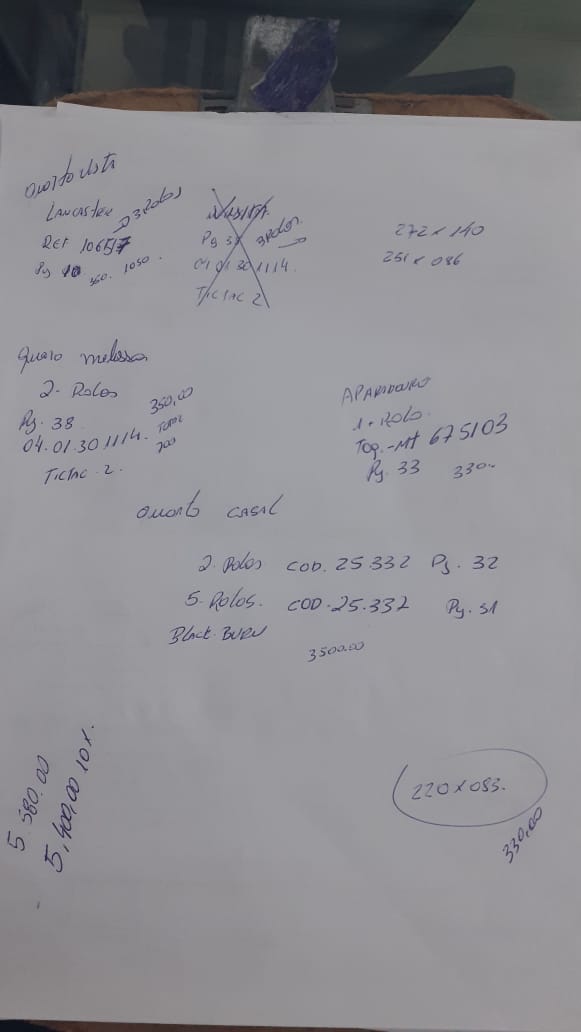 Quarto visita
LANCASTER 3 Rolos
REF 10657
Pg 10 350. 1050.
Pg 38 3 Rolos
04.01.30 1114.
TicTac 2
272 x 140
251 x 086
Quarto melissa
2- Rolos
350,00
Pg. 38
04.01.30 1114. TOTAL
700
TicTac 2.
APARADOURO
1- Rolo.
Toq.-MT 675103
Pg. 33 330-
Quarto CASAL
2- Rolos COD. 25.332 Pg. 32
5- Rolos. COD. 25.332 Pg. 31
Black BURN
3500.00
5.580.00
5,400,00 10x.
220 x 083.
330,00